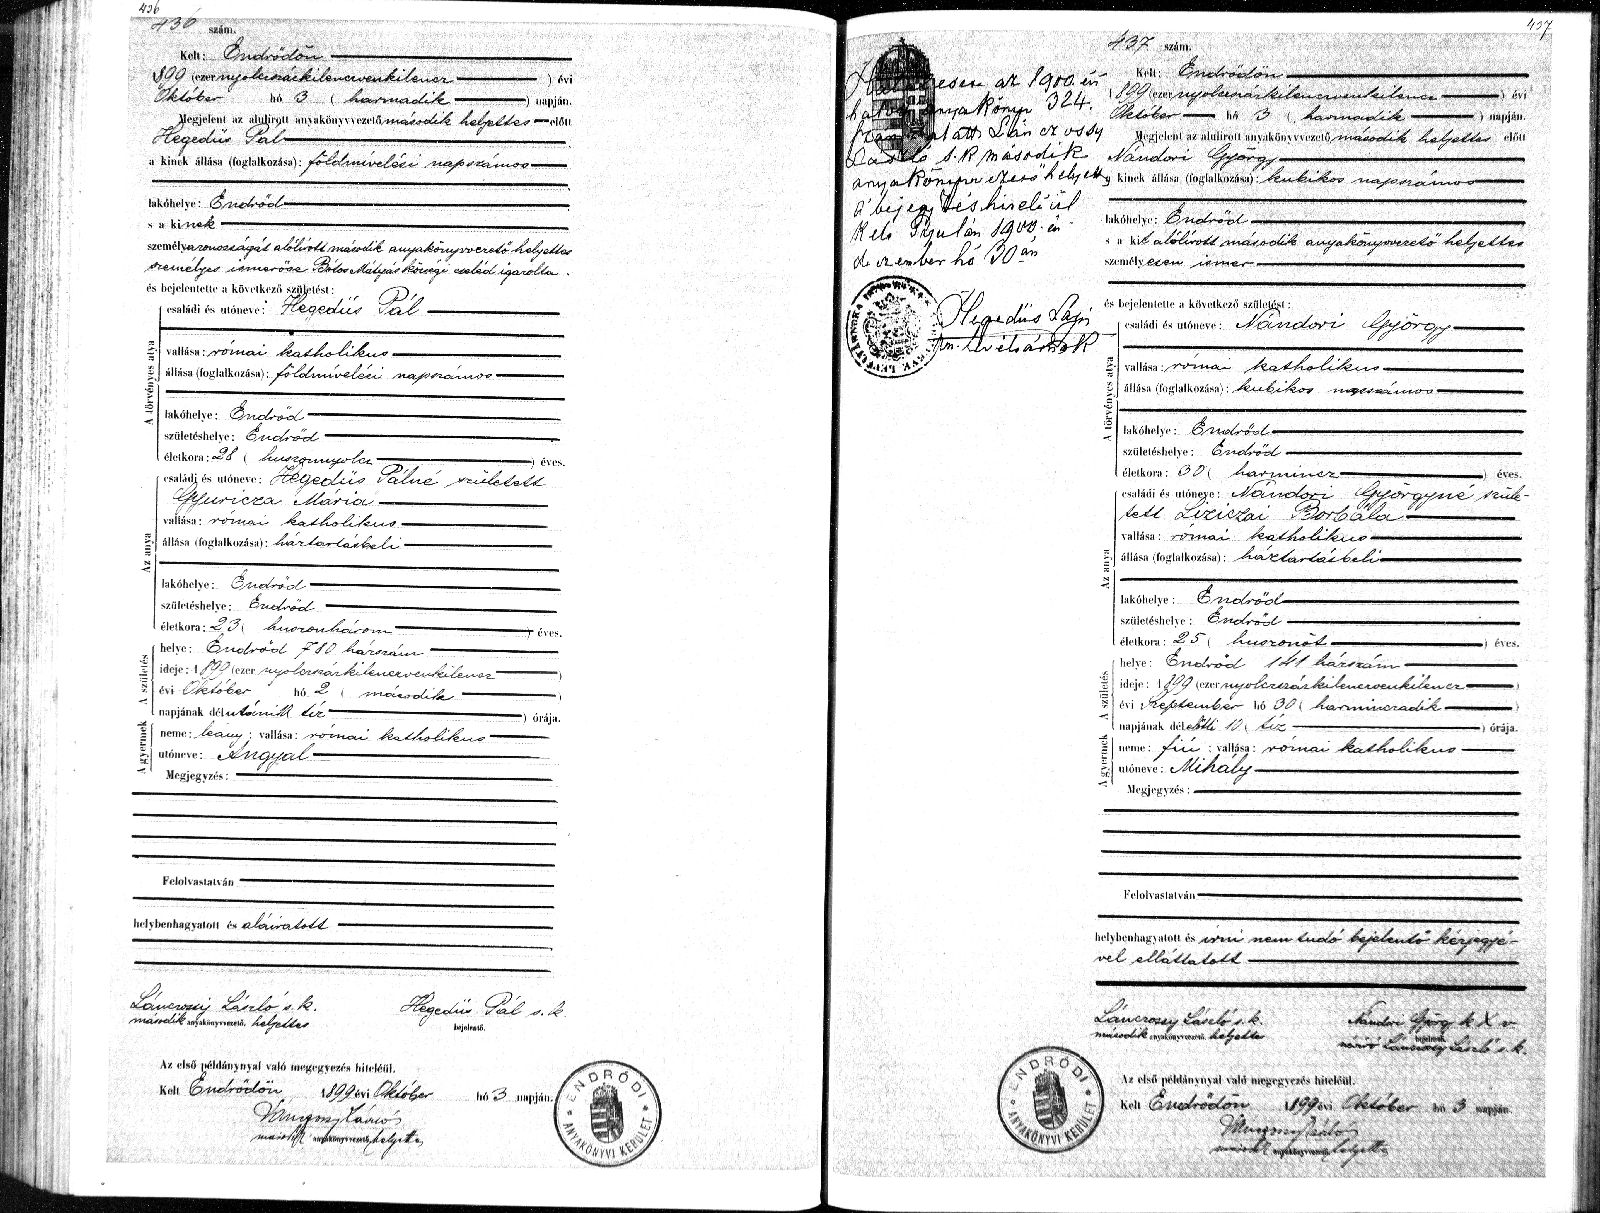 436
436 szám.
Kelt: Endrődön
1899 (ezernyolczszázkilenczvenkilencz) évi
Október hó 3 (harmadik) napján.
Megjelent az alulirott anyakönyvvezető, második helyettes előtt
Hegedüs Pál
a kinek állása (foglalkozása): földmívelési napszámos
lakóhelye: Endrőd
s a kinek
személyazonosságát alólírott második anyakönyvvezető helyettes
személyes ismerőse Bótos Mátyás községi család igazolta.
és bejelentette a következő születést:
A törvényes atya
családi és utóneve: Hegedüs Pál
vallása: római katholikus
állása (foglalkozása): földmívelési napszámos
lakóhelye: Endrőd
születéshelye: Endrőd
életkora: 28 (huszonnyolcz) éves.
Az anya
családi és utóneve: Hegedüs Pálné született
Gyuricza Mária
vallása: római katholikus
állása (foglalkozása): háztartásbeli
lakóhelye: Endrőd
születéshelye: Endrőd
életkora: 23 (huszonhárom) éves.
A születés
helye: Endrőd 780 házszám
ideje: 1899 (ezernyolczszázkilenczvenkilencz)
évi Október hó 2 (második)
napjának délutáni tíz ) órája.
A gyermek
neme: leány; vallása: római katholikus
utóneve: Angyal
Megjegyzés:
Felolvastatván
helybenhagyatott és aláiratott
Lánczossy László s.k. Hegedüs Pál s. k.
második anyakönyvvezető helyettes bejelentő.
Az első példánynyal való megegyezés hiteléül.
Kelt Endrődön 1899 évi Október hó 3 napján.
anyakönyvvezető helyettes
ENDRŐDI
ANYAKÖNYVI KERÜLET
437
az 1900 évi
anyakönyv 324.
alatt Lánczossy
László s.k. második
anyakönyvvezető helyettes
A bejegyzés hiteléül
Kelt Gyulán 1900 évi
deczember hó 30 án
Hegedüs Lajos
levéltárnok
437 szám.
Kelt: Endrődön
1899 (ezernyolczszázkilenczvenkilencz) évi
Október hó 3 (harmadik) napján.
Megjelent az alulirott anyakönyvvezető, második helyettes előtt
Nándori György
a kinek állása (foglalkozása): kubikos napszámos
lakóhelye: Endrőd
s a kit alólírott második anyakönyvvezető helyettes
személyesen ismer
és bejelentette a következő születést:
A törvényes atya
családi és utóneve: Nándori György
vallása: római katholikus
állása (foglalkozása): kubikos napszámos
lakóhelye: Endrőd
születéshelye: Endrőd
életkora: 30 (harmincz) éves.
Az anya
családi és utóneve: Nándori Györgyné szüle-
tett Liziczai Borbála
vallása: római katholikus
állása (foglalkozása): háztartásbeli
lakóhelye: Endrőd
születéshelye: Endrőd
életkora: 25 (huszonöt) éves.
A születés
helye: Endrőd 141 házszám
ideje: 1899 (ezernyolczszázkilenczvenkilencz)
évi Szeptember hó 30 (harminczadik)
napjának délelőtti 10 (tíz) órája.
A gyermek
neme: fiú; vallása: római katholikus
utóneve: Mihály
Megjegyzés:
Felolvastatván
helybenhagyatott és irni nem tudó bejelentő kézjegyé-
vel elláttatott
Lánczossy László s.k. Nándori György k X v.
második anyakönyvvezető helyettes bejelentő.
névíró Lánczossy László s.k.
Az első példánynyal való megegyezés hiteléül.
Kelt Endrődön 1899 évi Október hó 3 napján.
anyakönyvvezető helyettes
ENDRŐDI
ANYAKÖNYVI KERÜLET